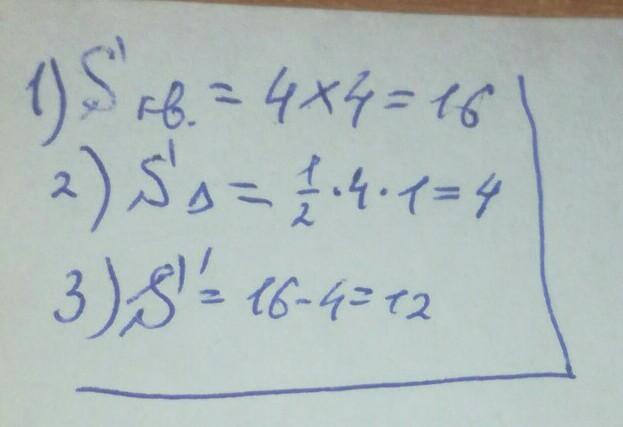 1) S кв. = 4 × 4 = 16
2) S Δ = 1/2 · 4 · 1 = 4
3) S = 16 - 4 = 12